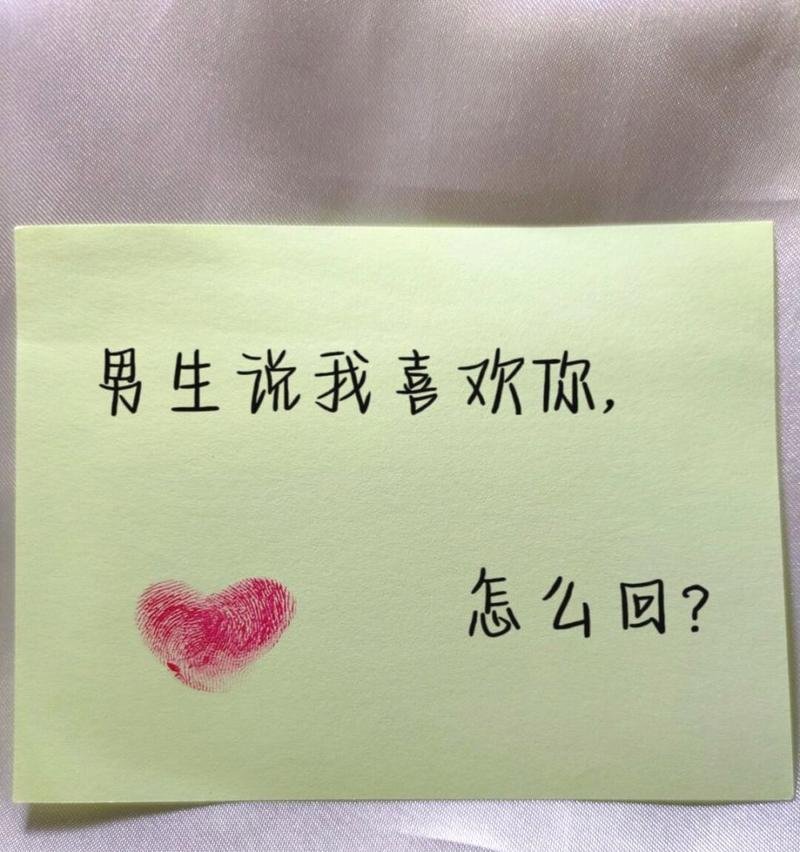 男生说我喜欢你,
怎么回?